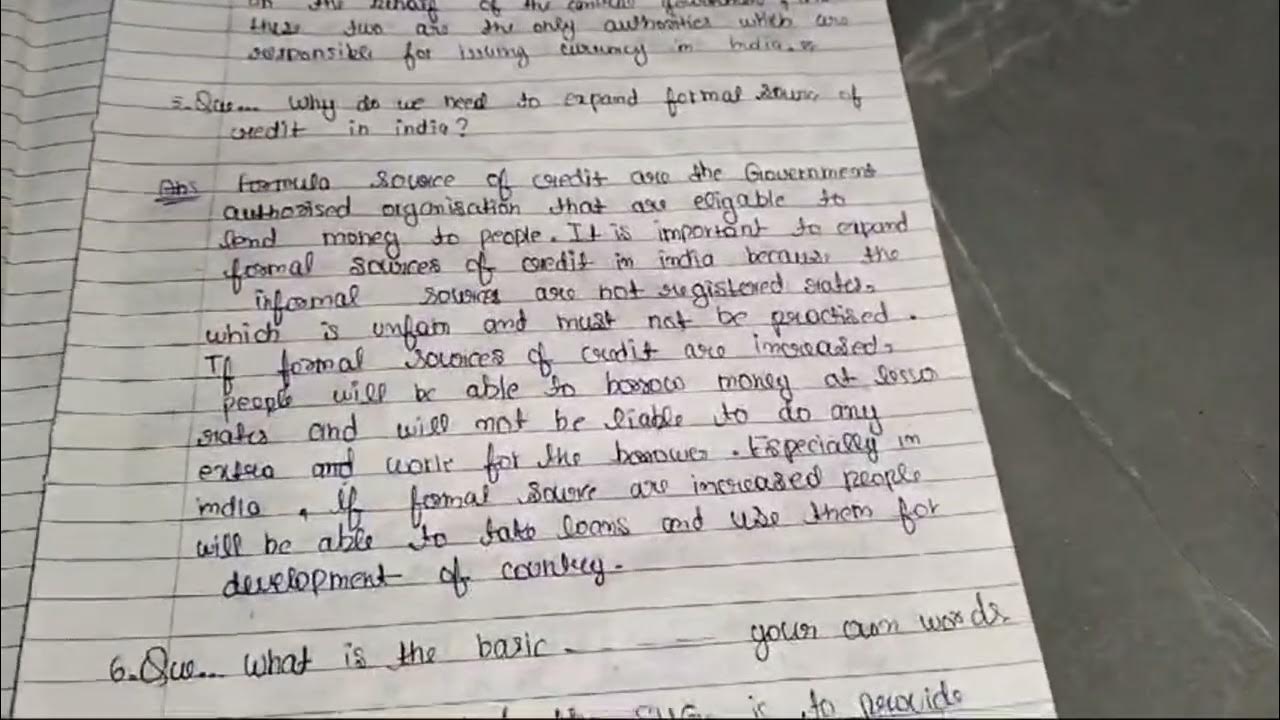 on the behalf of the central
these two are the only authorities which are
responsible for issuing currency in India.
5. Que... Why do we need to expand formal sourc of
credit in india?
Ans formula source of credit are the Government
authorised organisation that are eligable to
lend money to people. It is important to expand
formal sources of credit in india because the
informal sources are not registered rates.
which is unfair and must not be practised.
If formal sources of credit are increased.
people will be able to borrow money at lesso
rates and will not be liable to do any
extra and work for the borrower. Especially in
india, if formal source are increased people
will be able to take loans and use them for
development of country.
6. Que... what is the basic ------ your own words
is to provide